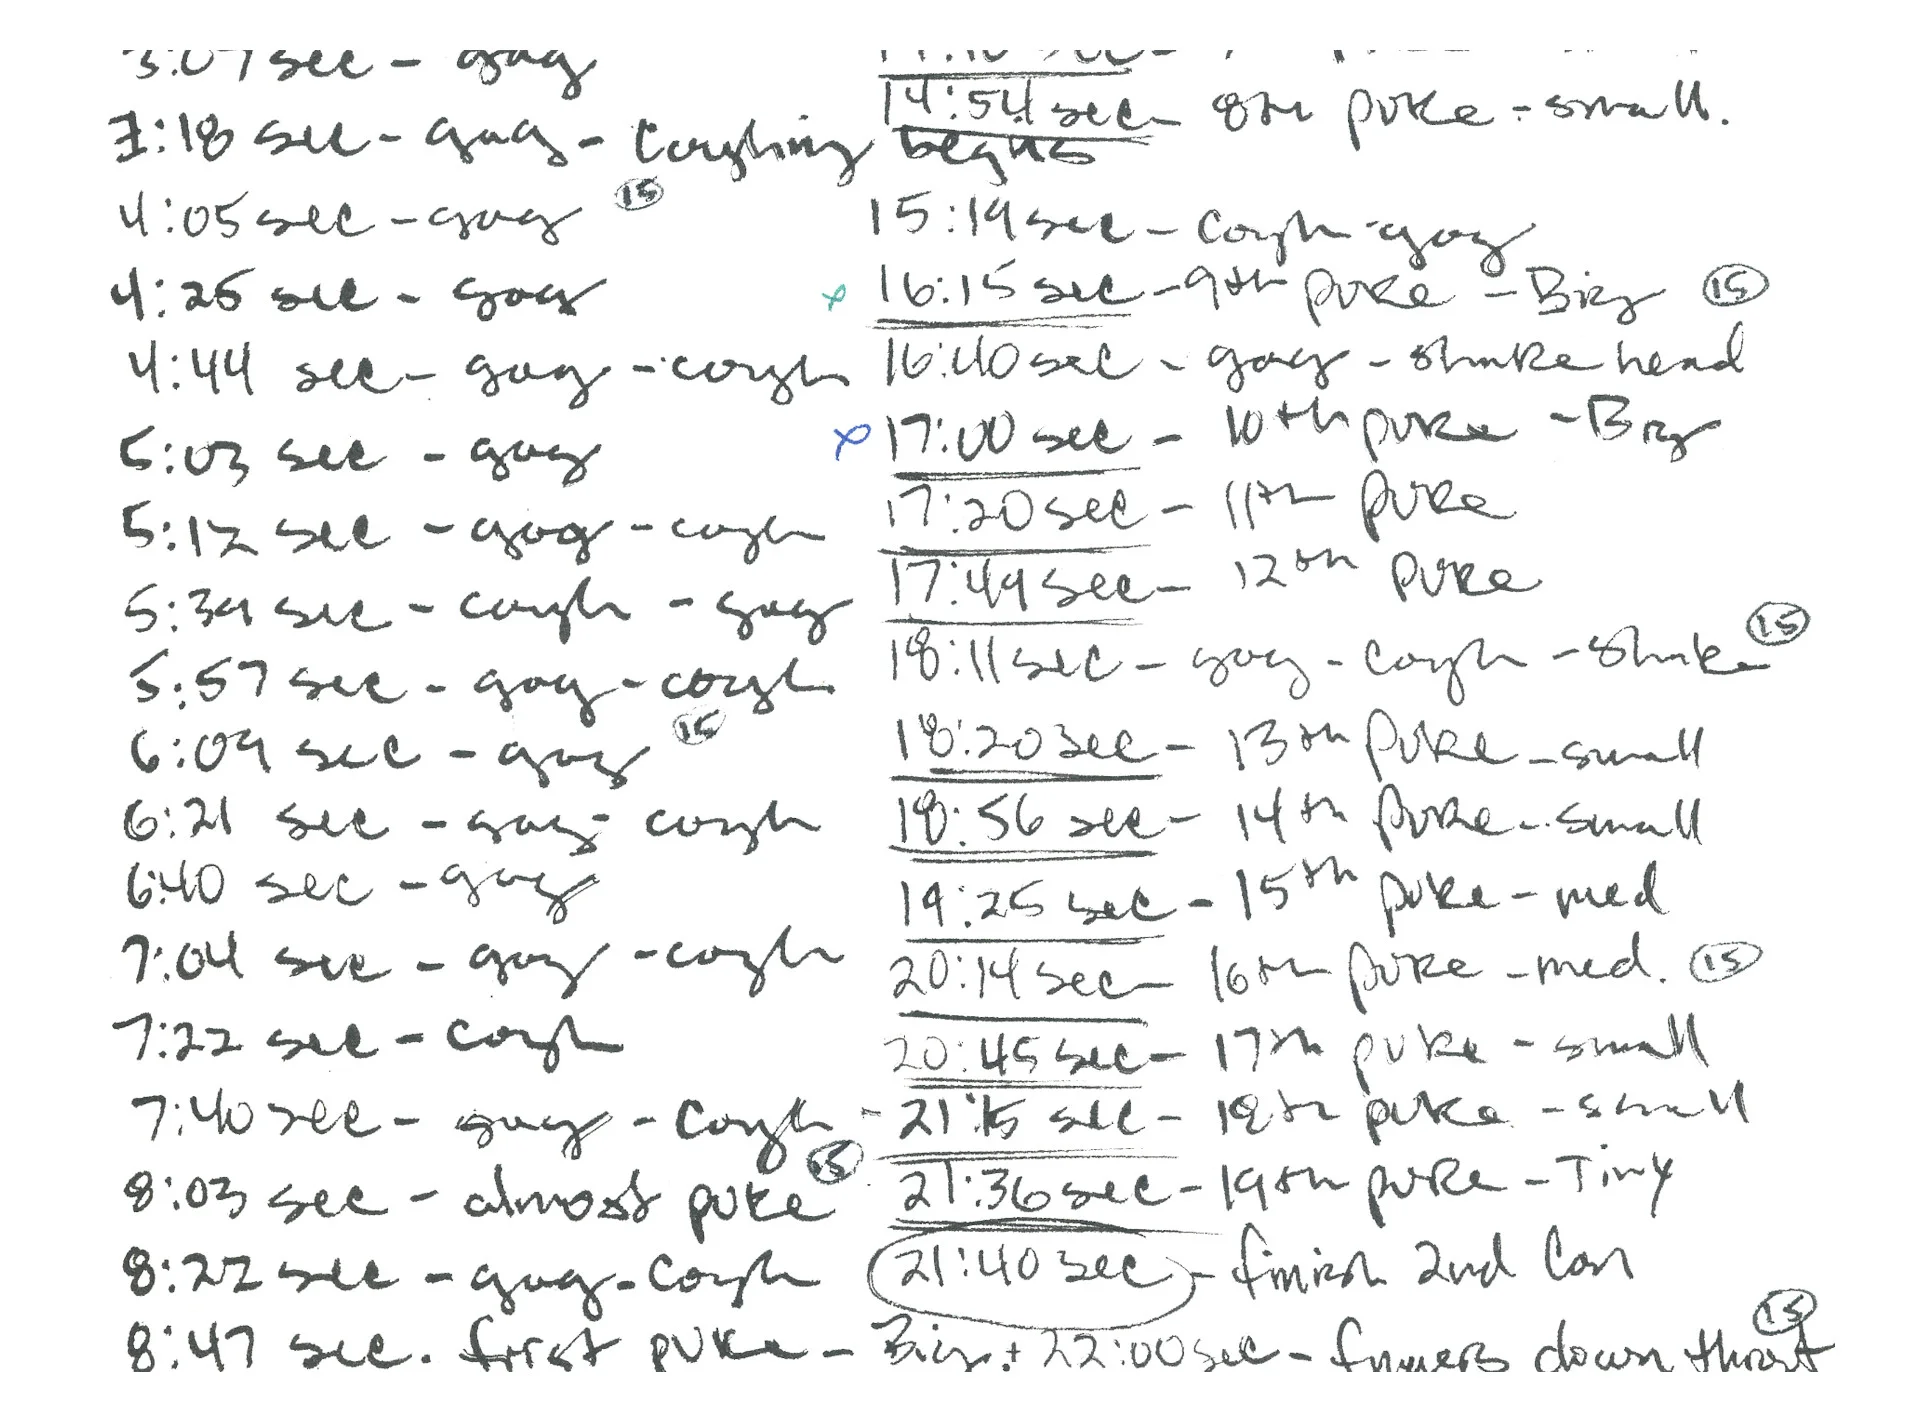 3:07 sec - gag
3:18 sec - gag - Coughing begins
4:05 sec - gag 15
4:25 sec - gag
4:44 sec - gag - cough
5:03 sec - gag
5:12 sec - gag - cough
5:39 sec - cough - gag
5:57 sec - gag - cough
6:09 sec - gag 15
6:21 sec - gag - cough
6:40 sec - gag
7:04 sec - gag - cough
7:22 sec - cough
7:40 sec - gag - Cough -
8:03 sec - almost puke 15
8:22 sec - gag - Cough
8:47 sec. first puke - Big +
14:54 sec - 8th puke - small.
15:19 sec - cough - gag
x 16:15 sec - 9th puke - Big 15
16:40 sec - gag - shake head
x 17:00 sec - 10th puke - Big
17:20 sec - 11th puke
17:49 sec - 12th puke
18:11 sec - gag - cough - shake 15
18:20 sec - 13th puke - small
18:56 sec - 14th puke - small
19:25 sec - 15th puke - med
20:14 sec - 16th puke - med. 15
20:45 sec - 17th puke - small
21:15 sec - 18th puke - small
21:36 sec - 19th puke - Tiny
21:40 sec - finish 2nd Can
22:00 sec - fingers down throat 15